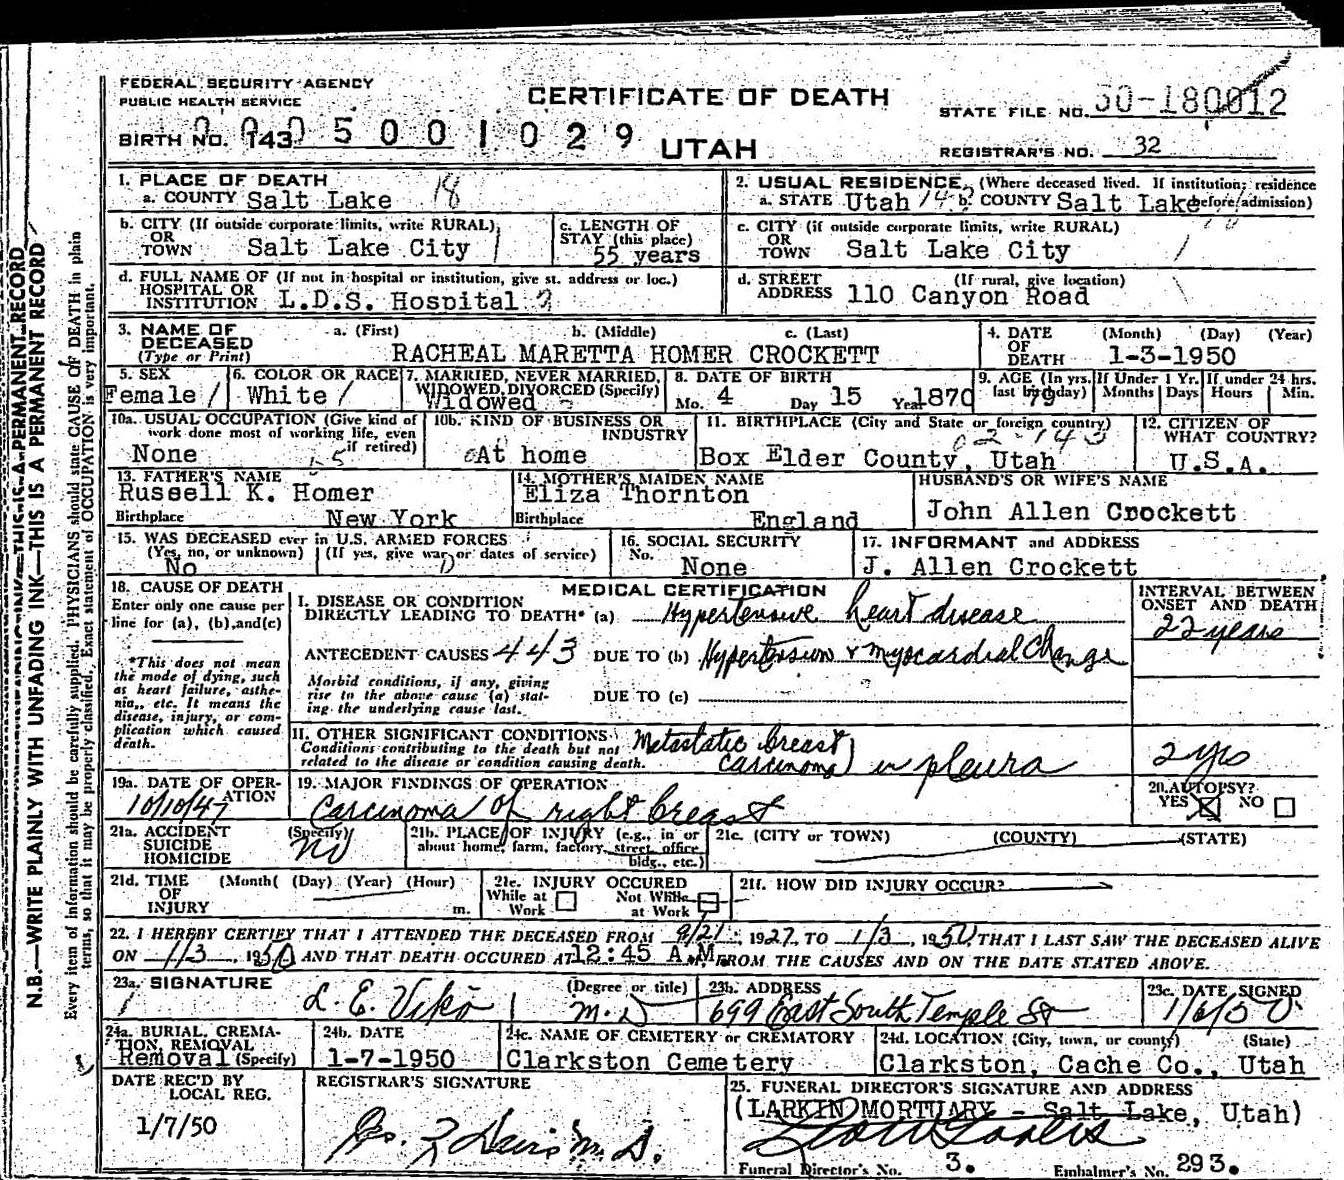 FEDERAL SECURITY AGENCY
PUBLIC HEALTH SERVICE
CERTIFICATE OF DEATH
STATE FILE NO. 50-180012
BIRTH NO. 143 0 0 0 5 0 0 1 0 2 9
UTAH
REGISTRAR'S NO. 32
1. PLACE OF DEATH
a. COUNTY Salt Lake 18
2. USUAL RESIDENCE (Where deceased lived. If institution; residence before admission)
a. STATE Utah b. COUNTY Salt Lake
b. CITY (If outside corporate limits, write RURAL)
OR TOWN Salt Lake City
c. LENGTH OF STAY (this place) 55 years
c. CITY (if outside corporate limits, write RURAL)
OR TOWN Salt Lake City
d. FULL NAME OF (If not in hospital or institution, give st. address or loc.)
HOSPITAL OR INSTITUTION L.D.S. Hospital
d. STREET ADDRESS (If rural, give location)
110 Canyon Road
3. NAME OF DECEASED (Type or Print)
a. (First) b. (Middle) c. (Last)
RACHEAL MARETTA HOMER CROCKETT
4. DATE OF DEATH (Month) (Day) (Year)
1-3-1950
5. SEX
Female
6. COLOR OR RACE
White
7. MARRIED, NEVER MARRIED, WIDOWED, DIVORCED (Specify)
Widowed
8. DATE OF BIRTH
Mo. 4 Day 15 Year 1870
9. AGE (In yrs. last birthday) 79
If Under 1 Yr. Months Days
If under 24 hrs. Hours Min.
10a. USUAL OCCUPATION (Give kind of work done most of working life, even if retired)
None
10b. KIND OF BUSINESS OR INDUSTRY
At home
11. BIRTHPLACE (City and State or foreign country)
Box Elder County, Utah
12. CITIZEN OF WHAT COUNTRY?
U.S.A.
13. FATHER'S NAME
Russell K. Homer
Birthplace New York
14. MOTHER'S MAIDEN NAME
Eliza Thornton
Birthplace England
HUSBAND'S OR WIFE'S NAME
John Allen Crockett
15. WAS DECEASED ever in U.S. ARMED FORCES
(Yes, no, or unknown) (If yes, give war or dates of service)
No
16. SOCIAL SECURITY
No. None
17. INFORMANT and ADDRESS
J. Allen Crockett
18. CAUSE OF DEATH
Enter only one cause per line for (a), (b), and (c)
*This does not mean the mode of dying, such as heart failure, asthenia, etc. It means the disease, injury, or complication which caused death.
MEDICAL CERTIFICATION
INTERVAL BETWEEN ONSET AND DEATH
I. DISEASE OR CONDITION DIRECTLY LEADING TO DEATH* (a) Hypertensive heart disease
22 years
ANTECEDENT CAUSES 443 DUE TO (b) Hypertension & myocardial Change
Morbid conditions, if any, giving rise to the above cause (a) stating the underlying cause last.
DUE TO (c)
II. OTHER SIGNIFICANT CONDITIONS
Conditions contributing to the death but not related to the disease or condition causing death.
Metastatic breast carcinoma) in pleura
2 yrs
19a. DATE OF OPERATION
10/10/47
19. MAJOR FINDINGS OF OPERATION
Carcinoma of right breast
20. AUTOPSY?
YES NO
21a. ACCIDENT SUICIDE HOMICIDE (Specify)
no
21b. PLACE OF INJURY (e.g., in or about home, farm, factory, street, office bldg., etc.)
21c. (CITY or TOWN) (COUNTY) (STATE)
21d. TIME OF INJURY (Month( (Day) (Year) (Hour) m.
21e. INJURY OCCURED
While at Work Not While at Work
21f. HOW DID INJURY OCCUR?
22. I HEREBY CERTIFY THAT I ATTENDED THE DECEASED FROM 9/21, 1927, TO 1/3, 1950, THAT I LAST SAW THE DECEASED ALIVE
ON 1/3, 1950 AND THAT DEATH OCCURED AT 12:45 A.M. FROM THE CAUSES AND ON THE DATE STATED ABOVE.
23a. SIGNATURE (Degree or title)
L. E. Viko M.D.
23b. ADDRESS
699 East South Temple St
23c. DATE SIGNED
1/6/50
24a. BURIAL, CREMATION, REMOVAL (Specify)
Removal
24b. DATE
1-7-1950
24c. NAME OF CEMETERY or CREMATORY
Clarkston Cemetery
24d. LOCATION (City, town, or county) (State)
Clarkston, Cache Co., Utah
DATE REC'D BY LOCAL REG.
1/7/50
REGISTRAR'S SIGNATURE
M.D.
25. FUNERAL DIRECTOR'S SIGNATURE AND ADDRESS
(LARKIN MORTUARY - Salt Lake, Utah)
Funeral Director's No. 3. Embalmer's No. 293.
N.B.—WRITE PLAINLY WITH UNFADING INK—THIS IS A PERMANENT RECORD
Every item of information should be carefully supplied. PHYSICIANS should state CAUSE OF DEATH in plain
terms, so that it may be properly classified. Exact statement of OCCUPATION is very important.